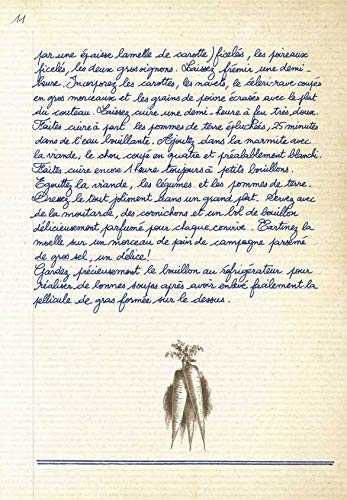 11
par une épaisse lamelle de carotte) ficelés, les poireaux
ficelés, les deux gros oignons. Laissez frémir une demi-
heure. Incorporez les carottes, les navets, le céleri-rave coupés
en gros morceaux et les grains de poivre écrasés avec le plat
du couteau. Laissez cuire une demi-heure à feu très doux.
Faites cuire à part les pommes de terre épluchées, 25 minutes
dans de l'eau bouillante. Ajoutez dans la marmite avec
la viande, le chou coupé en quatre et préalablement blanchi.
Faites cuire encore 1 heure toujours à petits bouillons.
Egouttez la viande, les légumes et les pommes de terre.
Dressez le tout joliment dans un grand plat. Servez avec
de la moutarde, des cornichons et un bol de bouillon
délicieusement parfumé pour chaque convive. Tartinez la
moelle sur un morceau de pain de campagne parsemé
de gros sel, un délice!
Gardez précieusement le bouillon au réfrigérateur pour
réaliser de bonnes soupes après avoir enlevé facilement la
pellicule de gras formée sur le dessus.